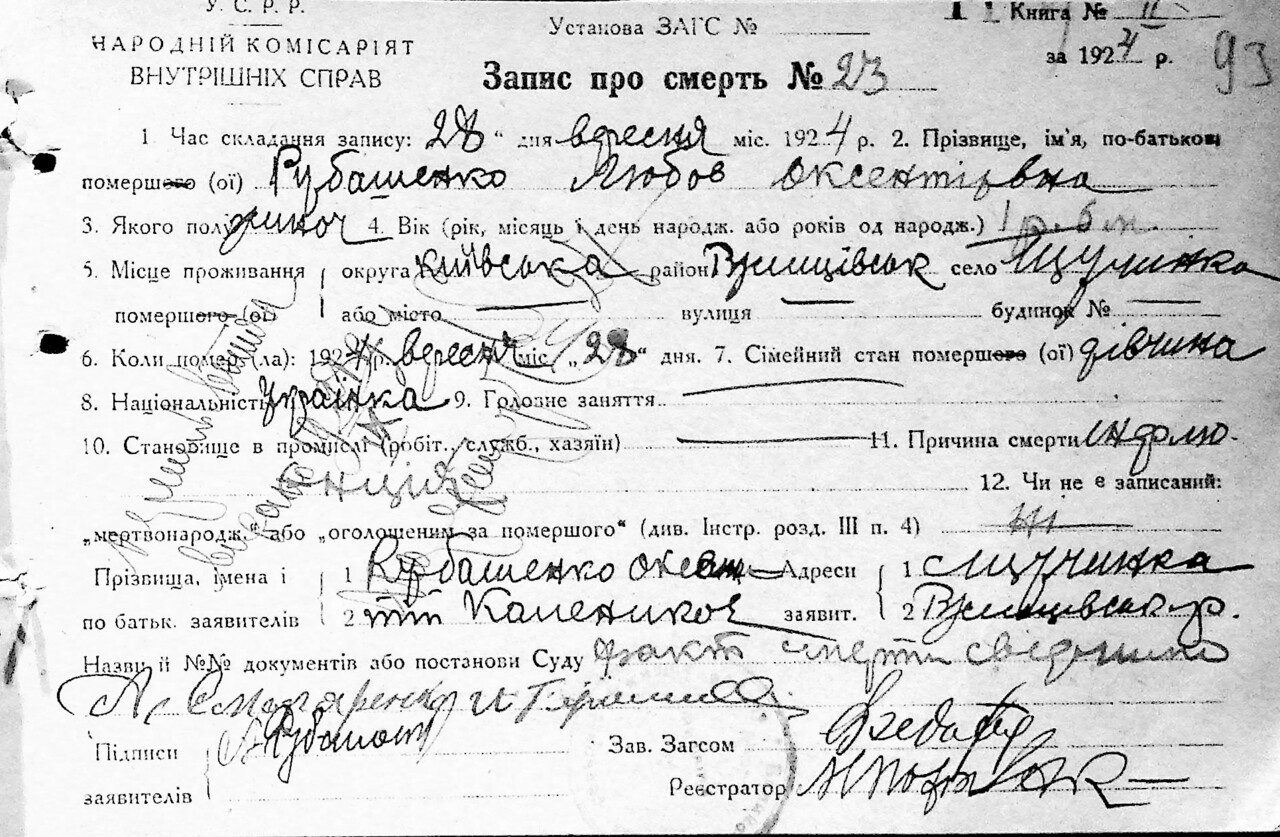 У.С.Р.Р.
НАРОДНІЙ КОМІСАРІЯТ
ВНУТРІШНІХ СПРАВ
Установа ЗАГС №
Книга № II
за 1924 р. 93
Запис про смерть № 23
1. Час складання запису: 28 " дня вересня міс. 1924 р. 2. Прізвище, ім'я, по-батькові
помершого (ої) Рубашенко Любов Оксентіївна
3. Якого полу жіноч 4. Вік (рік, місяць і день народж. або років од народж.) 1 р. 6 м.
5. Місце проживання округа Київська район Ржищівськ село Щучинка
помершого (ої) або місто вулиця будинок №
6. Коли помер (ла): 1924 р. вересня міс. „28" дня. 7. Сімейний стан помершого (ої) дівчина
8. Національність Українка 9. Головне заняття
10. Становище в промислі (робіт., служб., хазяїн) 11. Причина смерти інфлю-
енція 12. Чи не є записаний:
„мертвонародж." або „оголошеним за помершого" (див. Інстр. розд. III п. 4) ні
Прізвища, імена і 1 Рубашенко Оксен- Адреси 1 с Щучинка
по батьк. заявителів 2 тій Каленикov заявит. 2 Ржищівськ р.
Назви й №№ документів або постанови Суду факт смерти свідчили
Підписи А Рубашен Зав. Загсом
заявителів Реєстратор